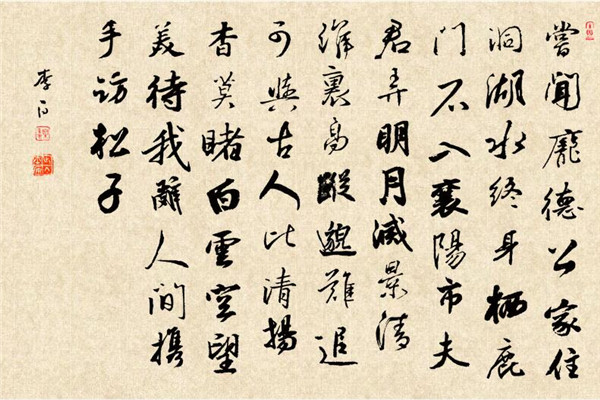 嘗聞龐德公家住
洞湖水終身栖鹿
門不入襄陽市夫
君弄明月滅景清
淮裏高蹤邈難追
可與古人比清揚
杳莫睹白雲空望
美待我辭人間携
手訪松子
李白